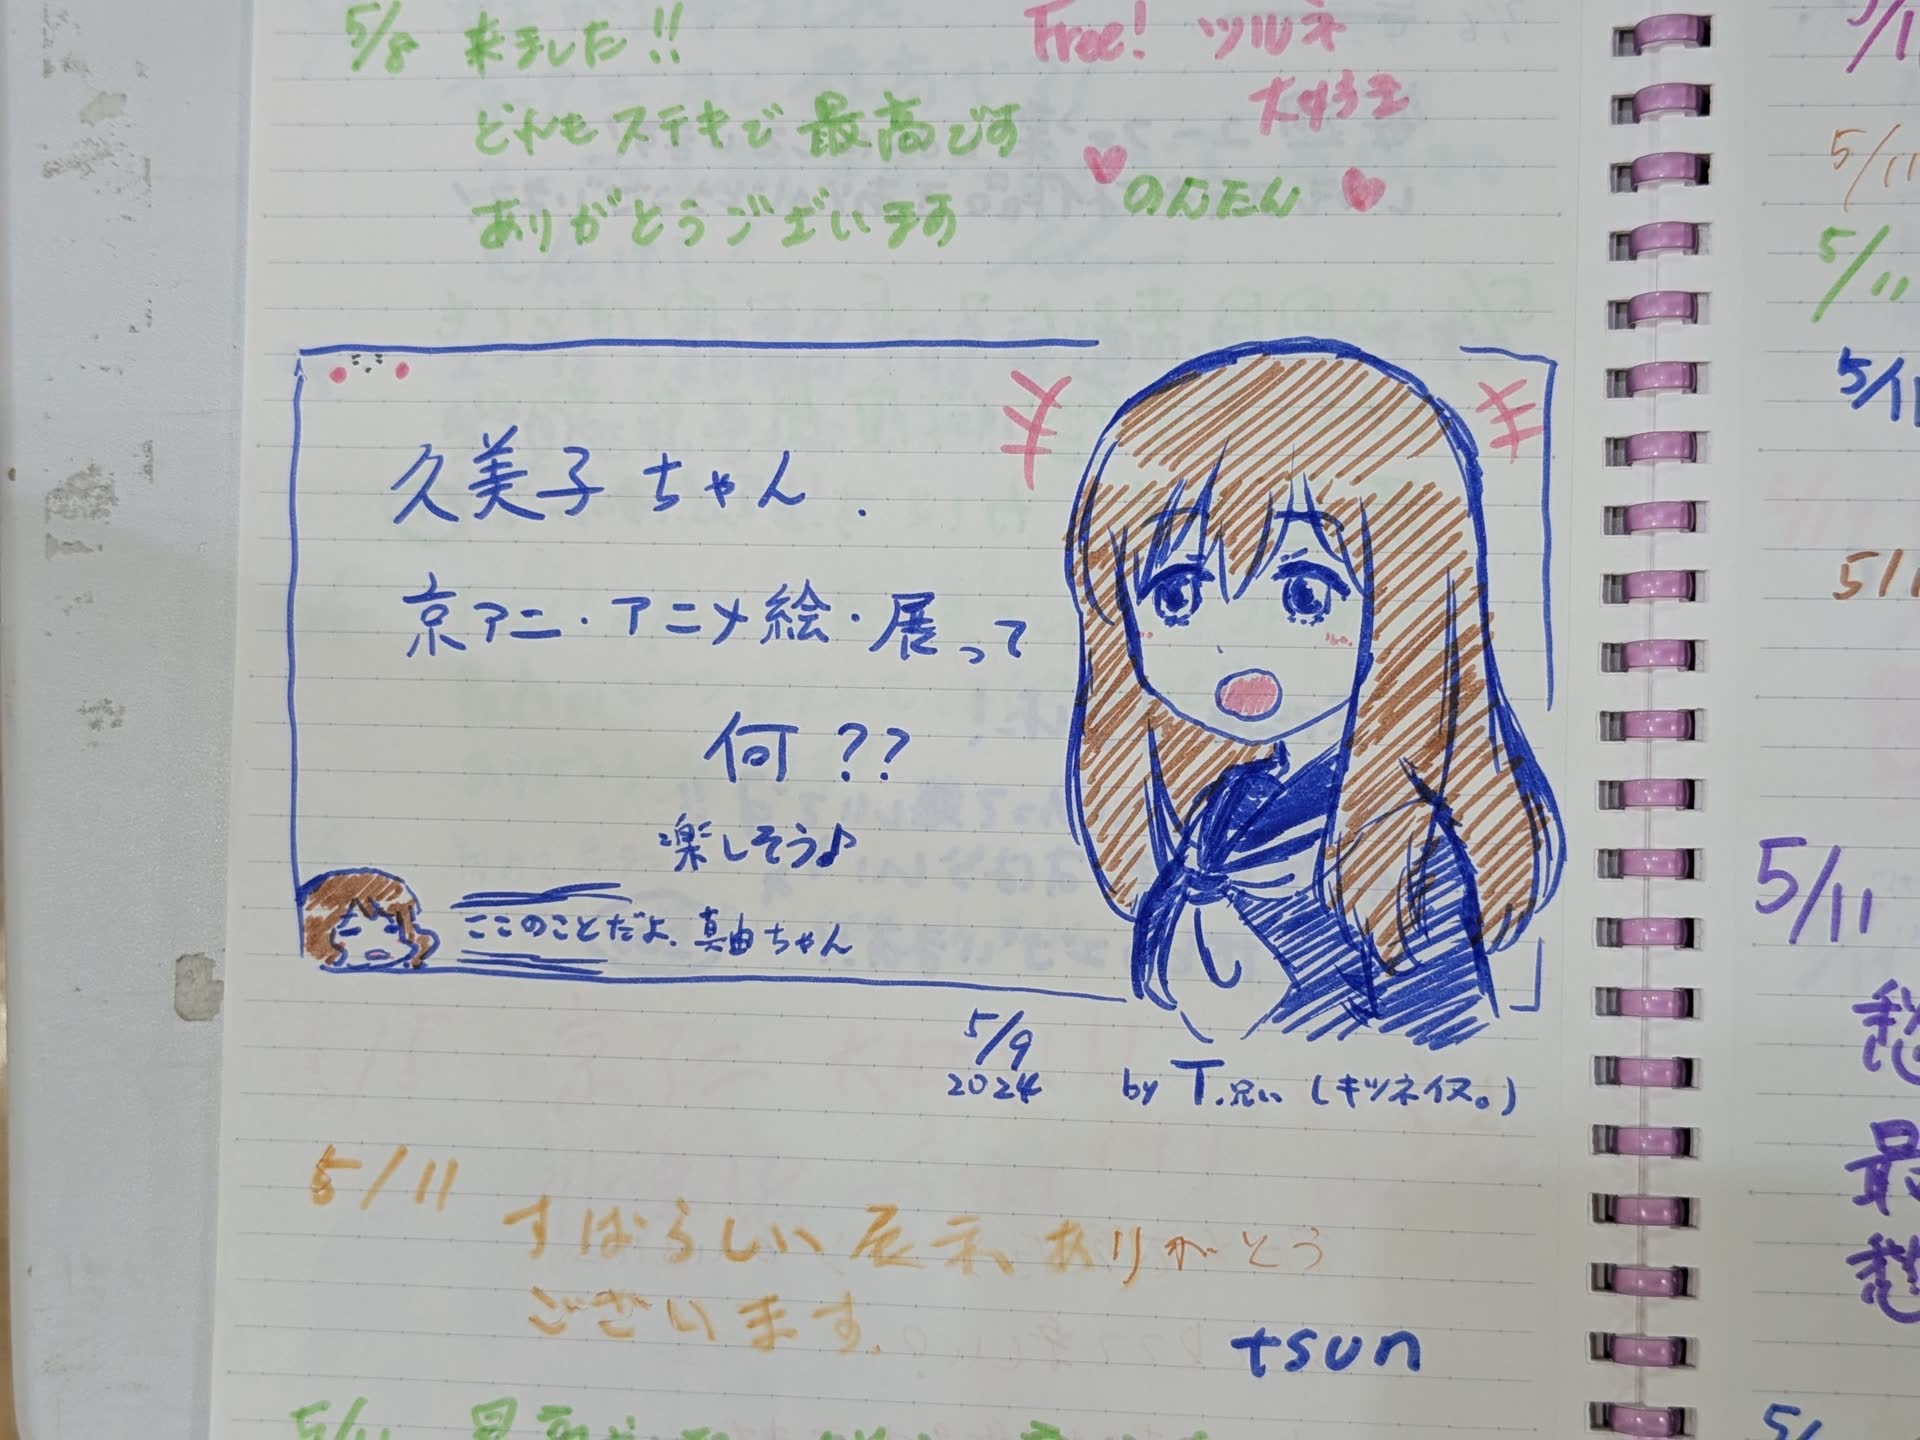 5/8 来ました!!
どれもステキで最高です
ありがとうございます
Free! ツルネ
大好き
のんたん
久美子ちゃん.
京アニ・アニメ絵・展って
何??
楽しそう♪
ここのことだよ、真由ちゃん
5/9
2024
by T.兄ぃ (キツネイヌ。)
5/11
すばらしい展示、ありがとう
ございます。
tsun
5/11
5/11
5/11